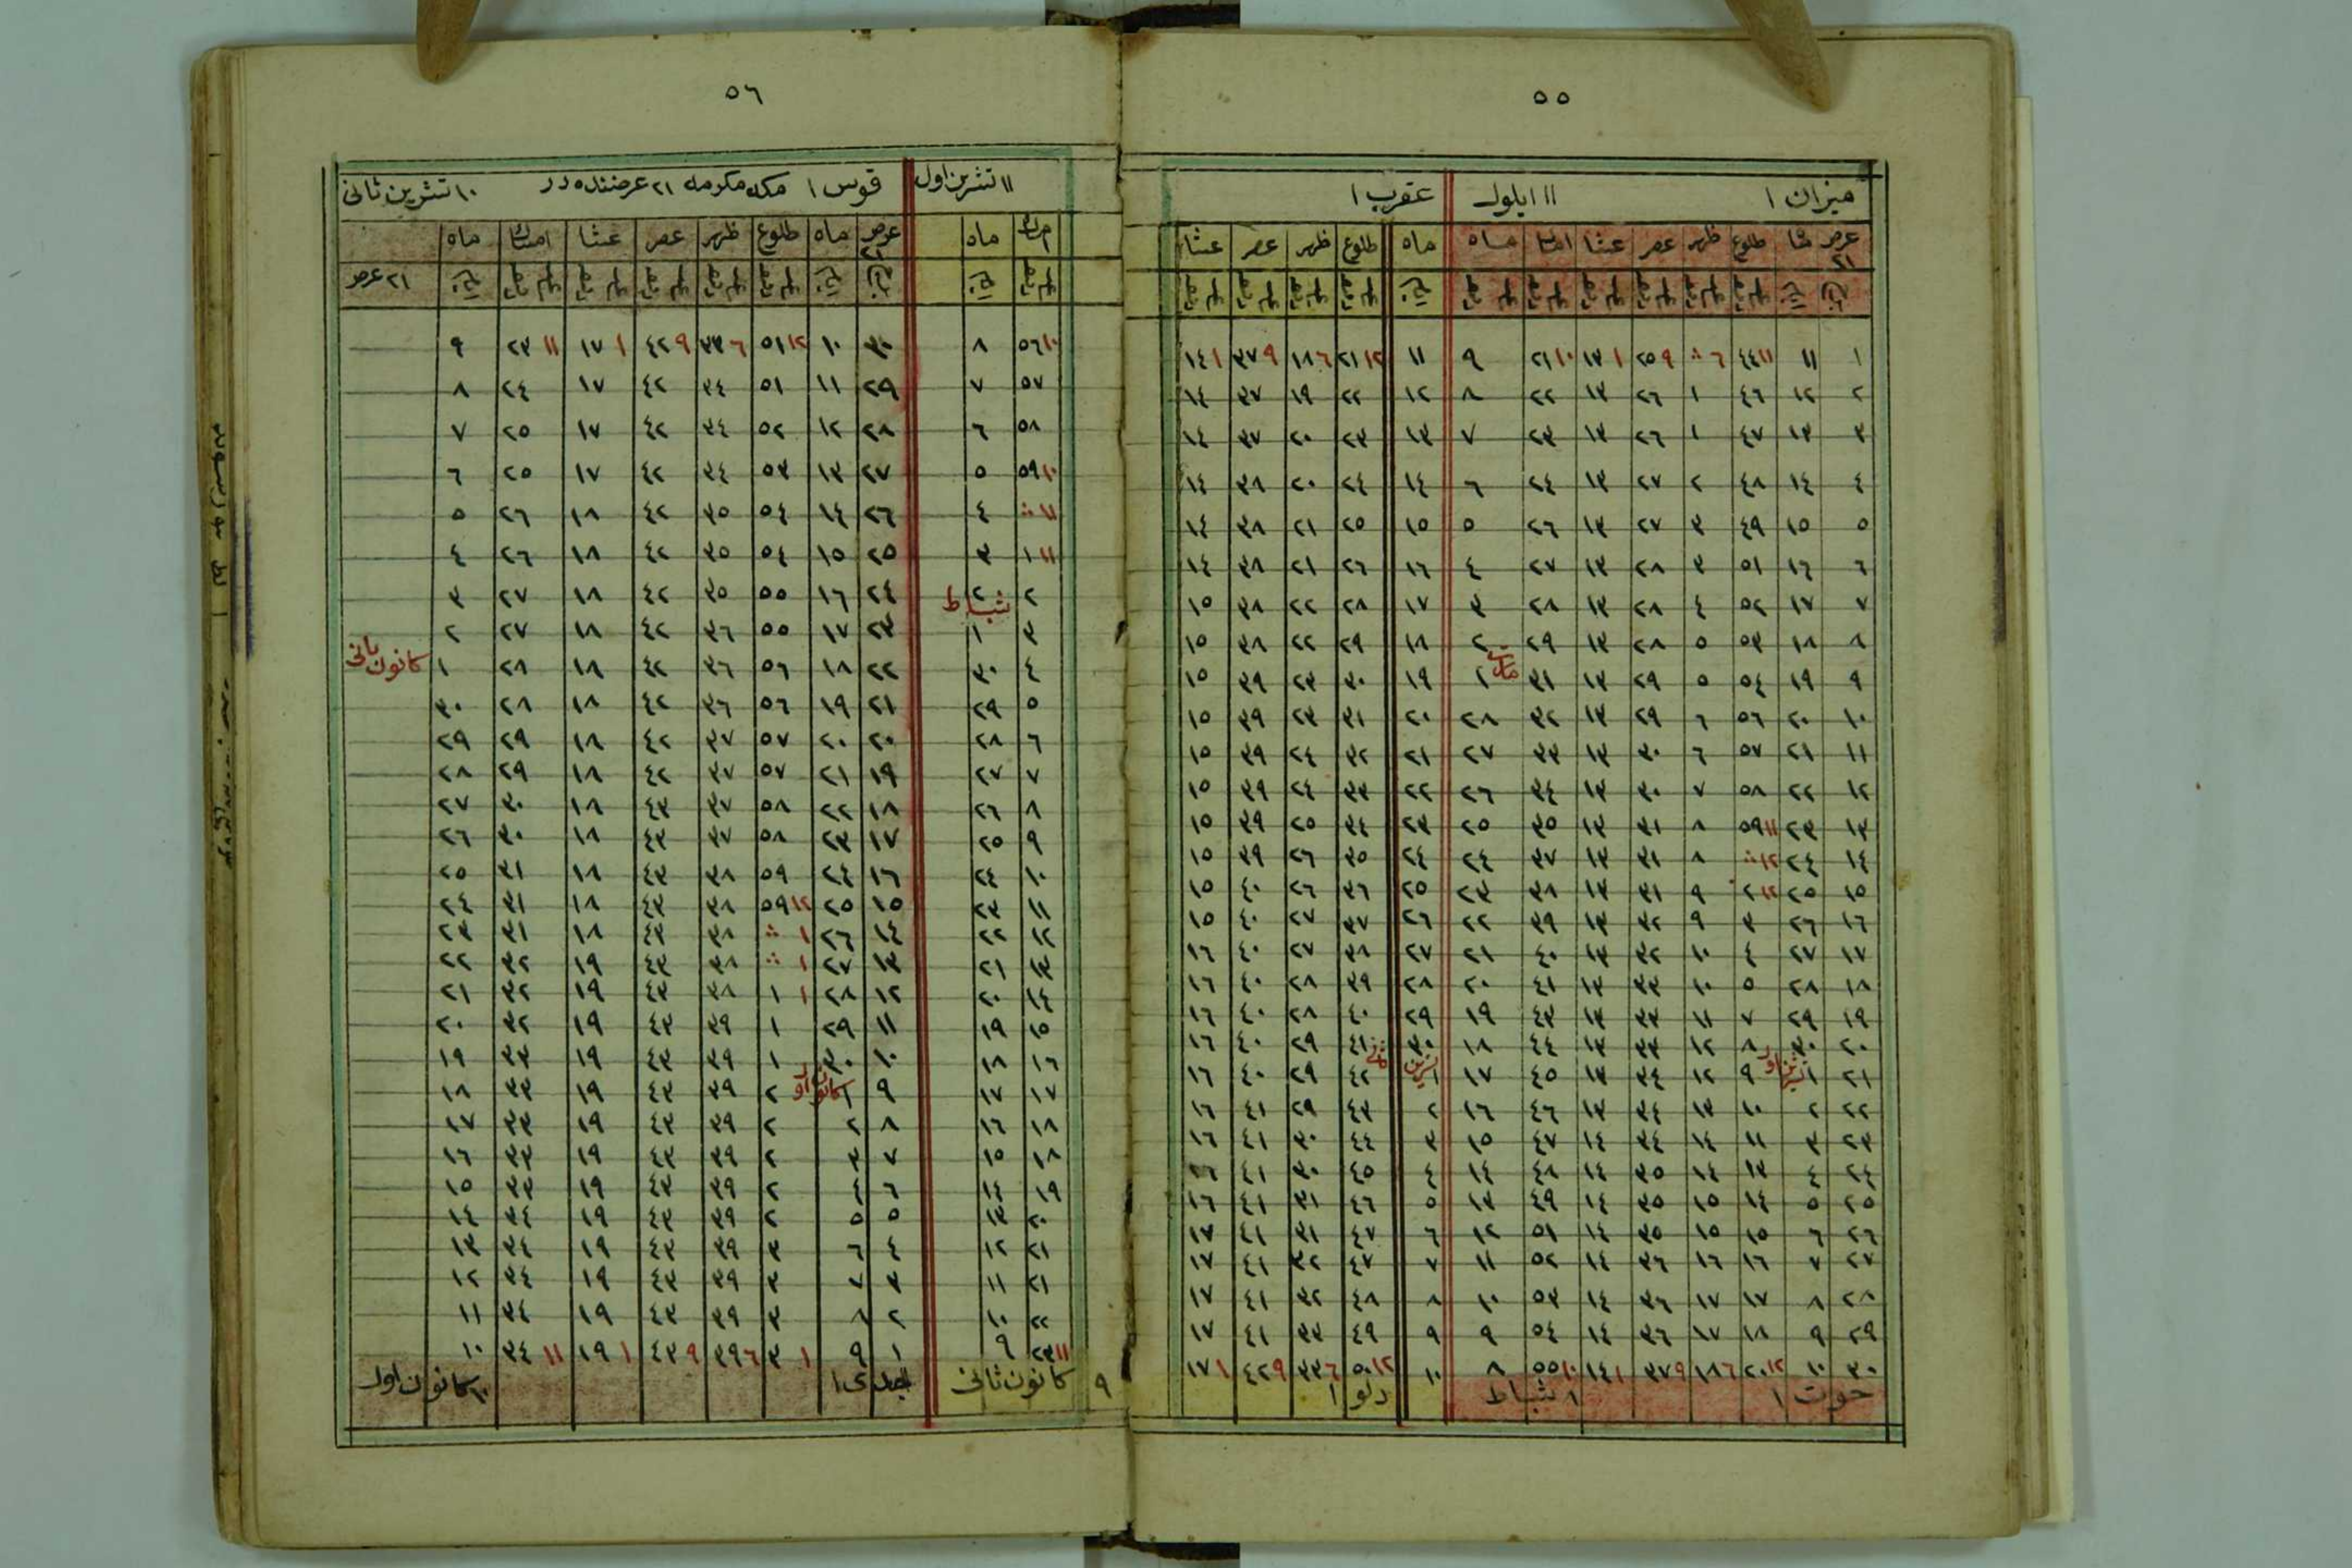 ٥٥
ميزان ١ ١١ ايلول عقرب ١
عرض ٢١ ماه طلوع ظهر عصر عشا امساك ماه ماه طلوع ظهر عصر عشا
١ ١١ ١١ ٤٤ ٦ ∴ ٩ ٢٥ ١ ١٣ ١٠ ٢١ ٩ ١١ ١٢ ٢١ ٦ ١٨ ٩ ٣٧ ١ ١٤
٢ ١٢ ٤٦ ١ ٢٦ ١٣ ٢٢ ٨ ١٢ ٢٢ ١٩ ٣٧ ١٤
٣ ١٣ ٤٧ ١ ٢٦ ١٣ ٢٣ ٧ ١٣ ٢٣ ٢٠ ٣٧ ١٤
٤ ١٤ ٤٨ ٢ ٢٧ ١٣ ٢٤ ٦ ١٤ ٢٤ ٢٠ ٣٨ ١٤
٥ ١٥ ٤٩ ٣ ٢٧ ١٣ ٢٦ ٥ ١٥ ٢٥ ٢١ ٣٨ ١٤
٦ ١٦ ٥١ ٣ ٢٨ ١٣ ٢٧ ٤ ١٦ ٢٦ ٢١ ٣٨ ١٤
٧ ١٧ ٥٢ ٤ ٢٨ ١٣ ٢٨ ٣ ١٧ ٢٨ ٢٢ ٣٨ ١٥
٨ ١٨ ٥٣ ٥ ٢٨ ١٣ ٢٩ ٢ ١٨ ٢٩ ٢٢ ٣٨ ١٥
٩ ١٩ ٥٤ ٥ ٢٩ ١٣ ٣١ مارت ١ ١٩ ٣٠ ٢٣ ٣٩ ١٥
١٠ ٢٠ ٥٦ ٦ ٢٩ ١٣ ٣٢ ٢٨ ٢٠ ٣١ ٢٣ ٣٩ ١٥
١١ ٢١ ٥٧ ٦ ٣٠ ١٣ ٣٣ ٢٧ ٢١ ٣٢ ٢٤ ٣٩ ١٥
١٢ ٢٢ ٥٨ ٧ ٣٠ ١٣ ٣٤ ٢٦ ٢٢ ٣٣ ٢٤ ٣٩ ١٥
١٣ ٢٣ ١١ ٥٩ ٨ ٣١ ١٣ ٣٥ ٢٥ ٢٣ ٣٤ ٢٥ ٣٩ ١٥
١٤ ٢٤ ١٢ ∴ ٨ ٣١ ١٣ ٣٧ ٢٤ ٢٤ ٣٥ ٢٦ ٣٩ ١٥
١٥ ٢٥ ١٢ ٢ ٩ ٣١ ١٣ ٣٨ ٢٣ ٢٥ ٣٦ ٢٦ ٤٠ ١٥
١٦ ٢٦ ٣ ٩ ٣٢ ١٣ ٣٩ ٢٢ ٢٦ ٣٧ ٢٧ ٤٠ ١٥
١٧ ٢٧ ٤ ١٠ ٣٢ ١٣ ٤٠ ٢١ ٢٧ ٣٨ ٢٧ ٤٠ ١٦
١٨ ٢٨ ٥ ١٠ ٣٣ ١٣ ٤١ ٢٠ ٢٨ ٣٩ ٢٨ ٤٠ ١٦
١٩ ٢٩ ٧ ١١ ٣٣ ١٣ ٤٣ ١٩ ٢٩ ٤٠ ٢٨ ٤٠ ١٦
٢٠ ٣٠ ٨ ١٢ ٣٣ ١٣ ٤٤ ١٨ ٣٠ ٤١ ٢٩ ٤٠ ١٦
٢١ ١ تشرين اول ٩ ١٢ ٣٤ ١٣ ٤٥ ١٧ ١ تشرين ثانى ٤٢ ٢٩ ٤٠ ١٦
٢٢ ٢ ١٠ ١٣ ٣٤ ١٣ ٤٦ ١٦ ٢ ٤٣ ٢٩ ٤١ ١٦
٢٣ ٣ ١١ ١٤ ٣٤ ١٤ ٤٧ ١٥ ٣ ٤٤ ٣٠ ٤١ ١٦
٢٤ ٤ ١٣ ١٤ ٣٥ ١٤ ٤٨ ١٤ ٤ ٤٥ ٣٠ ٤١ ١٦
٢٥ ٥ ١٤ ١٥ ٣٥ ١٤ ٤٩ ١٣ ٥ ٤٦ ٣١ ٤١ ١٦
٢٦ ٦ ١٥ ١٥ ٣٥ ١٤ ٥١ ١٢ ٦ ٤٧ ٣١ ٤١ ١٧
٢٧ ٧ ١٦ ١٦ ٣٦ ١٤ ٥٢ ١١ ٧ ٤٧ ٣٢ ٤١ ١٧
٢٨ ٨ ١٧ ١٧ ٣٦ ١٤ ٥٣ ١٠ ٨ ٤٨ ٣٢ ٤١ ١٧
٢٩ ٩ ١٨ ١٧ ٣٦ ١٤ ٥٤ ٩ ٩ ٤٩ ٣٣ ٤١ ١٧
٣٠ ١٠ ١٢ ٢٠ ٦ ١٨ ٩ ٣٧ ١ ١٤ ١٠ ٥٥ ٨ ١٠ ١٢ ٥٠ ٦ ٣٣ ٩ ٤٢ ١ ١٧
حوت ١ ٨ شباط دلو ١
٥٦
١١ تشرين اول قوس ١ مكه مكرمه ٢١ عرضنده در ١٠ تشرين ثانى
امساك ماه عرض ٢١ ماه طلوع ظهر عصر عشا امساك ماه
٢١ عرض
١٠ ٥٦ ٨ ٣٠ ١٠ ١٢ ٥١ ٦ ٣٣ ٩ ٤٢ ١ ١٧ ١١ ٢٣ ٩
٥٧ ٧ ٢٩ ١١ ٥١ ٣٤ ٤٢ ١٧ ٢٤ ٨
٥٨ ٦ ٢٨ ١٢ ٥٢ ٣٤ ٤٢ ١٧ ٢٥ ٧
١٠ ٥٩ ٥ ٢٧ ١٣ ٥٣ ٣٤ ٤٢ ١٧ ٢٥ ٦
١١ ∴ ٤ ٢٦ ١٤ ٥٤ ٣٥ ٤٢ ١٨ ٢٦ ٥
١١ ١ ٣ ٢٥ ١٥ ٥٤ ٣٥ ٤٢ ١٨ ٢٦ ٤
٢ ٢ ٢٤ ١٦ ٥٥ ٣٥ ٤٢ ١٨ ٢٧ ٣
٣ ١ شباط ٢٣ ١٧ ٥٥ ٣٦ ٤٢ ١٨ ٢٧ ٢
٤ ٣٠ ٢٢ ١٨ ٥٦ ٣٦ ٤٢ ١٨ ٢٨ ١ كانون ثانى
٥ ٢٩ ٢١ ١٩ ٥٦ ٣٦ ٤٢ ١٨ ٢٨ ٣٠
٦ ٢٨ ٢٠ ٢٠ ٥٧ ٣٧ ٤٢ ١٨ ٢٩ ٢٩
٧ ٢٧ ١٩ ٢١ ٥٧ ٣٧ ٤٢ ١٨ ٢٩ ٢٨
٨ ٢٦ ١٨ ٢٢ ٥٨ ٣٧ ٤٣ ١٨ ٣٠ ٢٧
٩ ٢٥ ١٧ ٢٣ ٥٨ ٣٧ ٤٣ ١٨ ٣٠ ٢٦
١٠ ٢٤ ١٦ ٢٤ ٥٩ ٣٨ ٤٣ ١٨ ٣١ ٢٥
١١ ٢٣ ١٥ ٢٥ ١٢ ٥٩ ٣٨ ٤٣ ١٨ ٣١ ٢٤
١٢ ٢٢ ١٤ ٢٦ ١ ∴ ٣٨ ٤٣ ١٨ ٣١ ٢٣
١٣ ٢١ ١٣ ٢٧ ١ ∴ ٣٨ ٤٣ ١٩ ٣٢ ٢٢
١٤ ٢٠ ١٢ ٢٨ ١ ١ ٣٨ ٤٣ ١٩ ٣٢ ٢١
١٥ ١٩ ١١ ٢٩ ١ ٣٩ ٤٣ ١٩ ٣٢ ٢٠
١٦ ١٨ ١٠ ٣٠ ١ ٣٩ ٤٣ ١٩ ٣٣ ١٩
١٧ ١٧ ٩ ١ كانون اول ٢ ٣٩ ٤٣ ١٩ ٣٣ ١٨
١٨ ١٦ ٨ ٢ ٢ ٣٩ ٤٣ ١٩ ٣٣ ١٧
١٨ ١٥ ٧ ٣ ٢ ٣٩ ٤٣ ١٩ ٣٣ ١٦
١٩ ١٤ ٦ ٤ ٢ ٣٩ ٤٣ ١٩ ٣٣ ١٥
٢٠ ١٣ ٥ ٥ ٢ ٣٩ ٤٣ ١٩ ٣٤ ١٤
٢١ ١٢ ٤ ٦ ٣ ٣٩ ٤٣ ١٩ ٣٤ ١٣
٢١ ١١ ٣ ٧ ٣ ٣٩ ٤٣ ١٩ ٣٤ ١٢
٢٢ ١٠ ٢ ٨ ٣ ٣٩ ٤٣ ١٩ ٣٤ ١١
١١ ٢٣ ٩ ١ ٩ ١ ٣ ٦ ٣٩ ٩ ٤٣ ١ ١٩ ١١ ٣٤ ١٠
٩ كانون ثانى جدى ١ ١٠ كانون اول